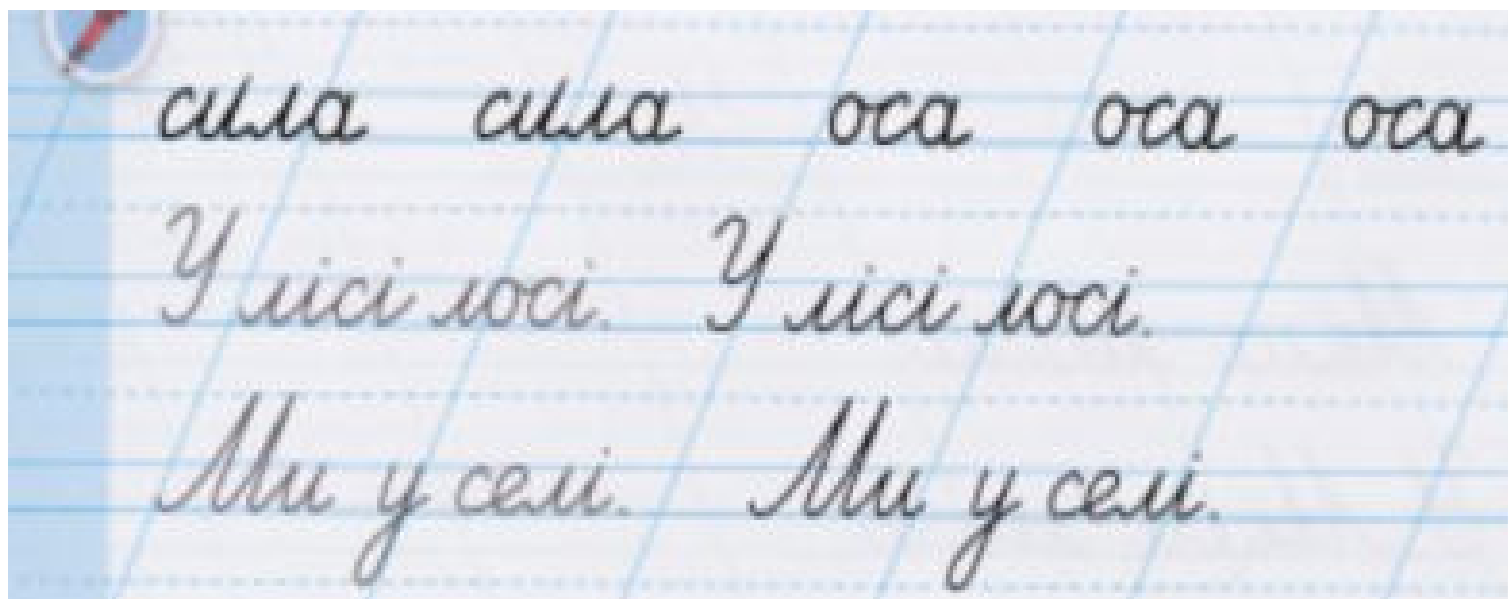 сіла сіла оса оса оса
У лісі лосі. У лісі лосі.
Ми у селі. Ми у селі.